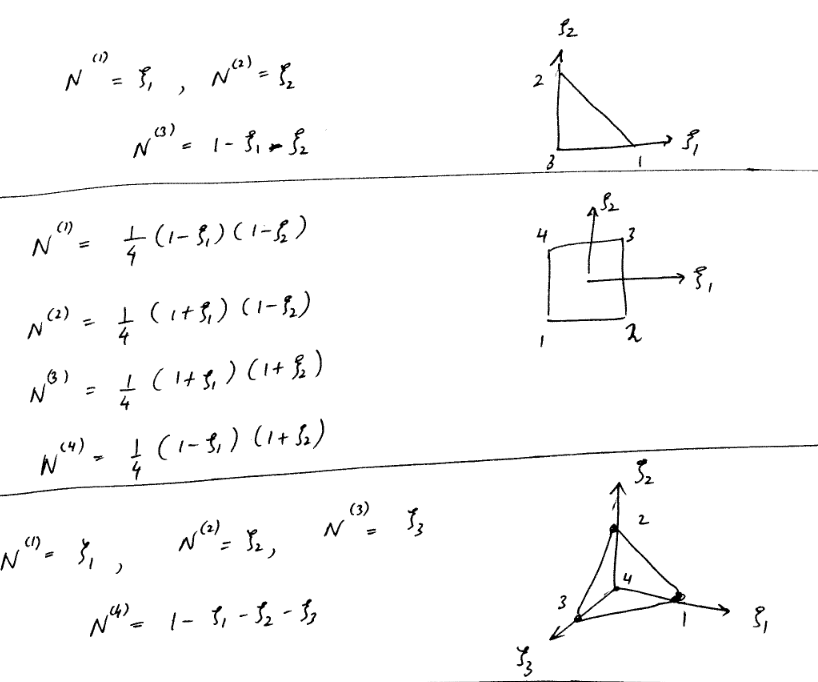 N^(1) = ξ₁ , N^(2) = ξ₂
N^(3) = 1 - ξ₁ - ξ₂
ξ₂
2
3
1
ξ₁
N^(1) = 1/4 (1-ξ₁)(1-ξ₂)
N^(2) = 1/4 (1+ξ₁)(1-ξ₂)
N^(3) = 1/4 (1+ξ₁)(1+ξ₂)
N^(4) = 1/4 (1-ξ₁)(1+ξ₂)
ξ₂
4
3
ξ₁
1
2
N^(1) = ξ₁ , N^(2) = ξ₂, N^(3) = ξ₃
N^(4) = 1 - ξ₁ - ξ₂ - ξ₃
ξ₂
2
4
3
1
ξ₁
ξ₃